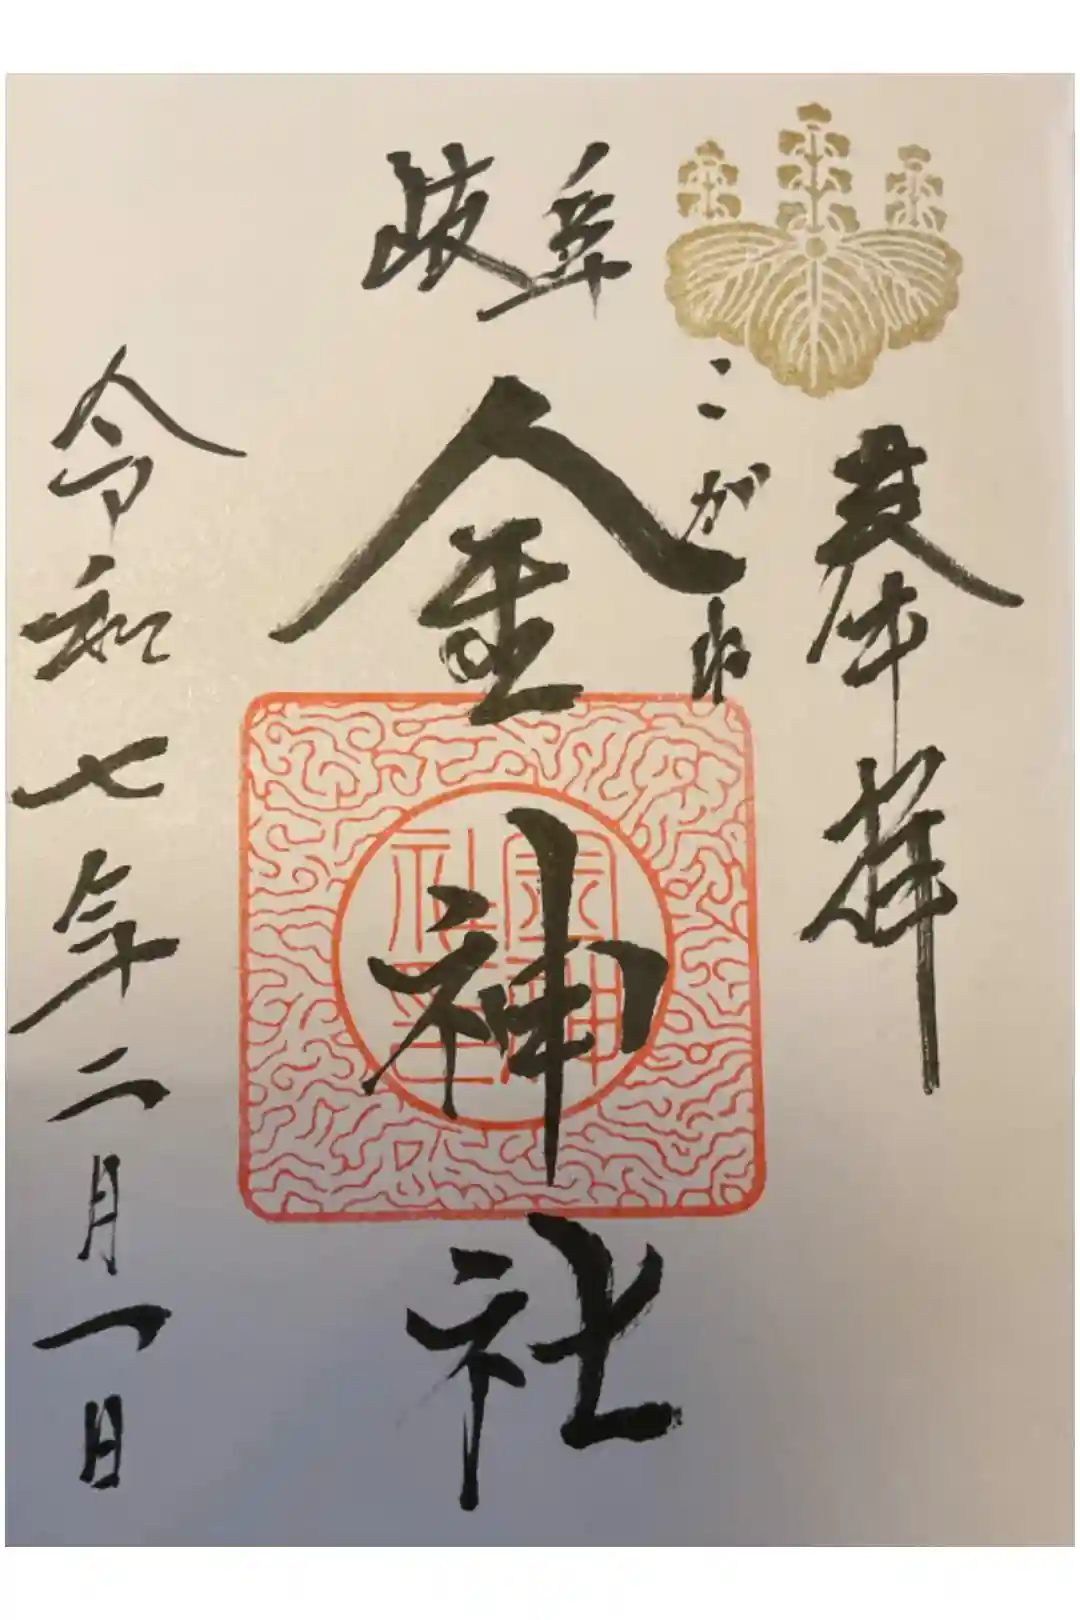 奉拝
岐阜
こがね
金神社
金神社印
令和七年二月一日